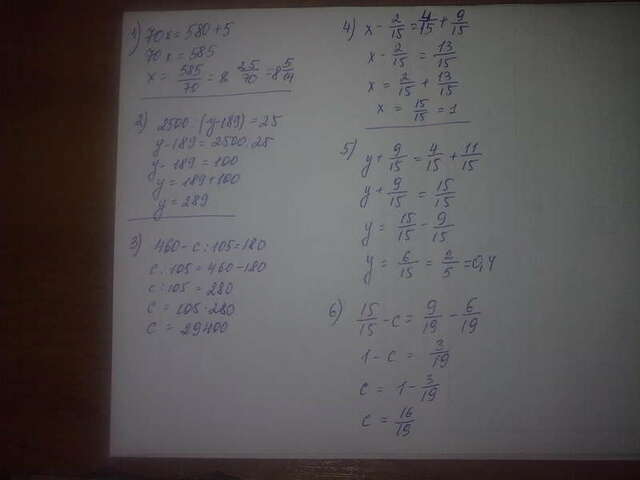 1) 70x = 580 + 5
70x = 585
x = 585/70 = 8 25/70 = 8 5/14
2) 2500 : (y - 189) = 25
y - 189 = 2500 : 25
y - 189 = 100
y = 189 + 100
y = 289
3) 460 - c : 105 = 180
c : 105 = 460 - 180
c : 105 = 280
c = 105 · 280
c = 29400
4) x - 2/15 = 4/15 + 9/15
x - 2/15 = 13/15
x = 2/15 + 13/15
x = 15/15 = 1
5) y + 9/15 = 4/15 + 11/15
y + 9/15 = 15/15
y = 15/15 - 9/15
y = 6/15 = 2/5 = 0,4
6) 15/15 - c = 9/19 - 6/19
1 - c = 3/19
c = 1 - 3/19
c = 16/19